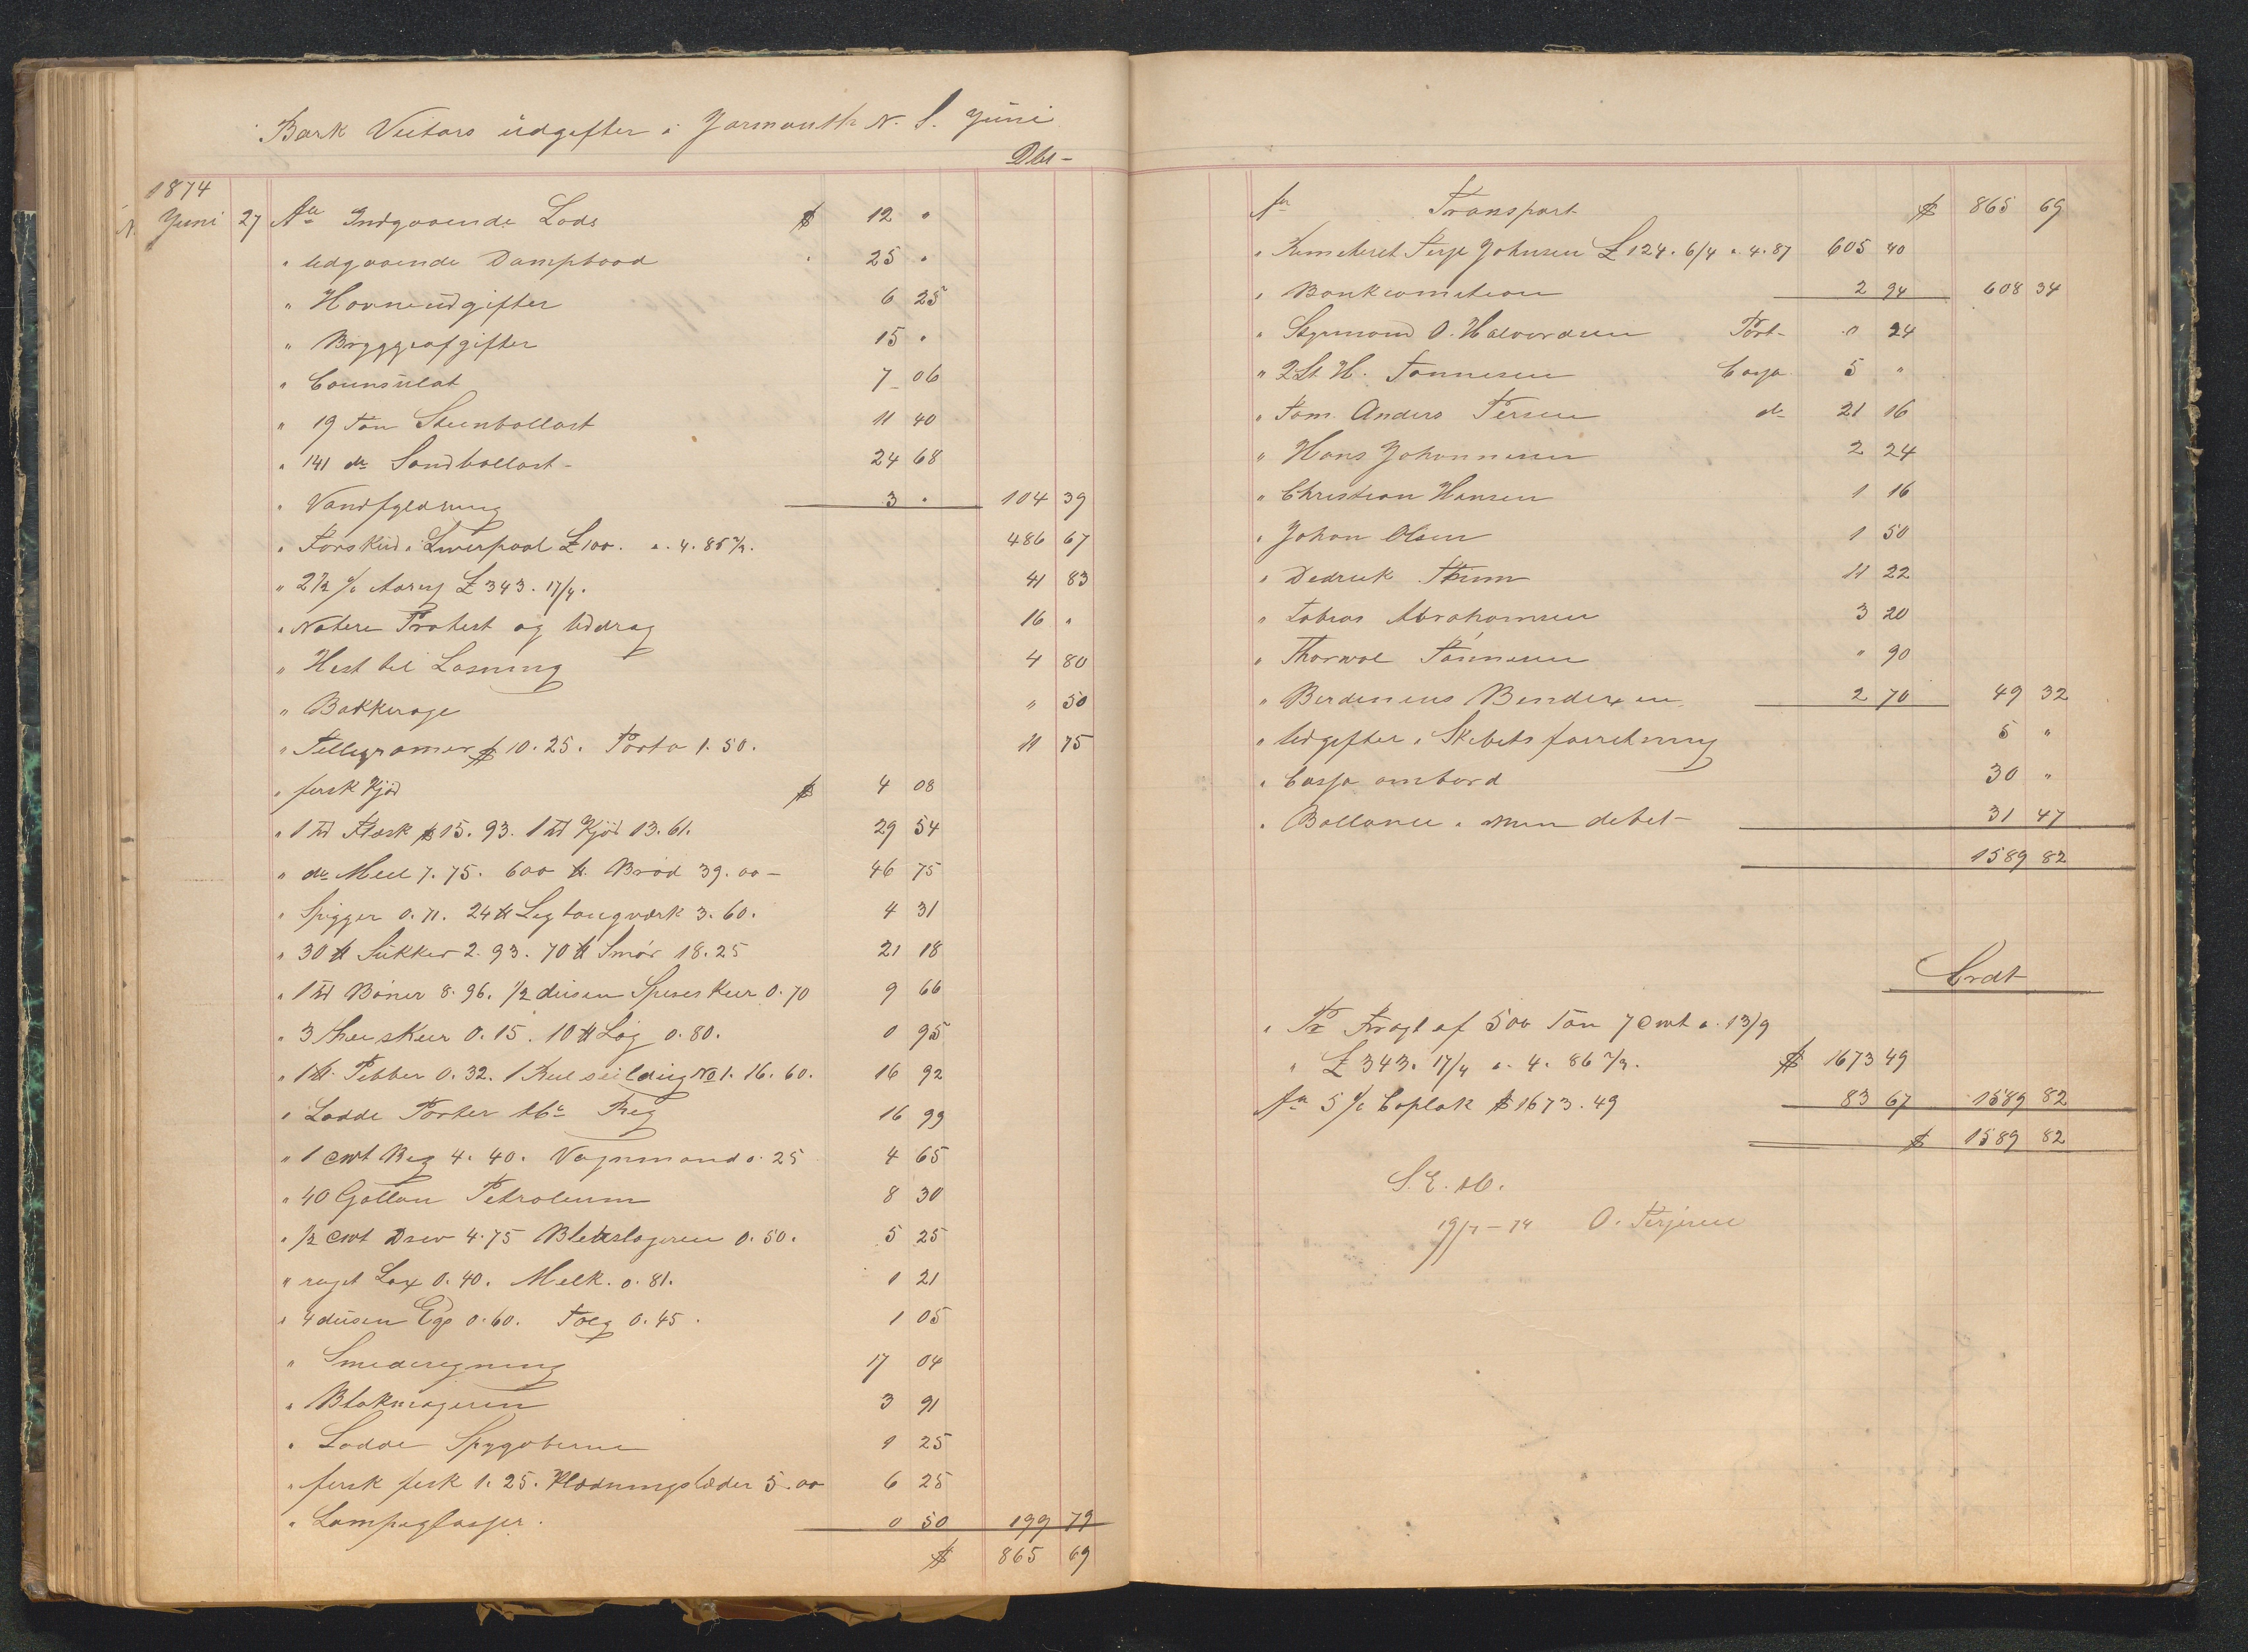 Bark Victors údgifter i Yarmouth N. S. Júni
Dbt -
1874
Juni 27 An Indgaaende Lods $ 12 "
" Udgaaende Dampbaad " 25 "
" Havneudgifter 6 25
" Bryggeafgifter 15 "
" Counsulat 7 06
" 19 Ton Steenballast 11 40
" 141 do Sandballast - 24 68
" Vandfyldning 3 " 104 39
" Forskud i Liverpool £ 100. a. 4. 85 2/3. 486 67
" 2 1/2 % £ 343. 17/4. 41 83
" Notere Protest og Uddrag 16 "
" Hest til Losning 4 80
" Bakkerage " 50
" Tellegramer $ 10. 25. Porto 1. 50. 11 75
" fersk Kjød $ 4 08
" 1 Td Flæsk $ 15. 93. 1 Td Kjød 13. 61. 29 54
" do Meel 7. 75. 600 ℔ Brød 39. 00 - 46 75
" Spigger 0. 71. 24 ℔ 3. 60. 4 31
" 30 ℔ Sukker 2. 93. 70 ℔ Smør 18. 25 21 18
" 1 Td Bøner 8. 96. 1/2 dusen Speseskeer 0. 70 9 66
" 3 Theeskeer 0. 15. 10 ℔ Løg 0. 80. 0 95
" 1 ℔. Pebber 0. 32. 1 Rul seildug No 1. 16. 60. 16 92
" Lodde Porter Reg 16 99
" 1 Cwt Beg 4. 40. Vognmand 0. 25 4 65
" 40 Gallon Petroleum 8 30
" 1/2 Cwt Drev 4. 75 Blekslageren 0. 50. 5 25
" røget Lax 0. 40. Melk. 0. 81. 1 21
" 4 dusen Eg 0. 60. Tælg 0. 45. 1 05
" Smederegning 17 04
" Blokmageren 3 91
" Lodde Spygaterne 1 25
" fersk fisk 1. 25. Klædningslæder 5. 00 6 25
" Lampeglasser. 0 50 199 79
$ 865 69
An Transport $ 865 69
" Remiteret Terje Johnsen £ 124. 6/4 a. 4. 87 605 40
" Bankcomition 2 94 608 34
" Styrmand O. Halvordsen Port. 0 24
" 2 St H. Tønnesen Cassa 5 "
" Tøm. Anders Tersen do 21 16
" Hans Johannesen 2 24
" Christian Hansen 1 16
" Johan Olsen 1 50
" Dedrick Thum 11 22
" Tobias Abrahamsen 3 20
" Thorwal Tønnesen " 90
" Berdinius Bendixen 2 70 49 32
" Udgifter i Skibets forretning 5 "
" Cassa ombord 30 "
" Ballance i min debet - 31 47
1589 82
Crdt
" Pr Fragt af 500 Ton 7 Cwt a. 13/9
" £ 343. 17/4 a. 4. 86 2/3. $ 1673 49
An 5 % Caplak $ 1673. 49 83 67 1589 82
$ 1589 82
S. E. &c.
19/7 - 74 O. Terjesen